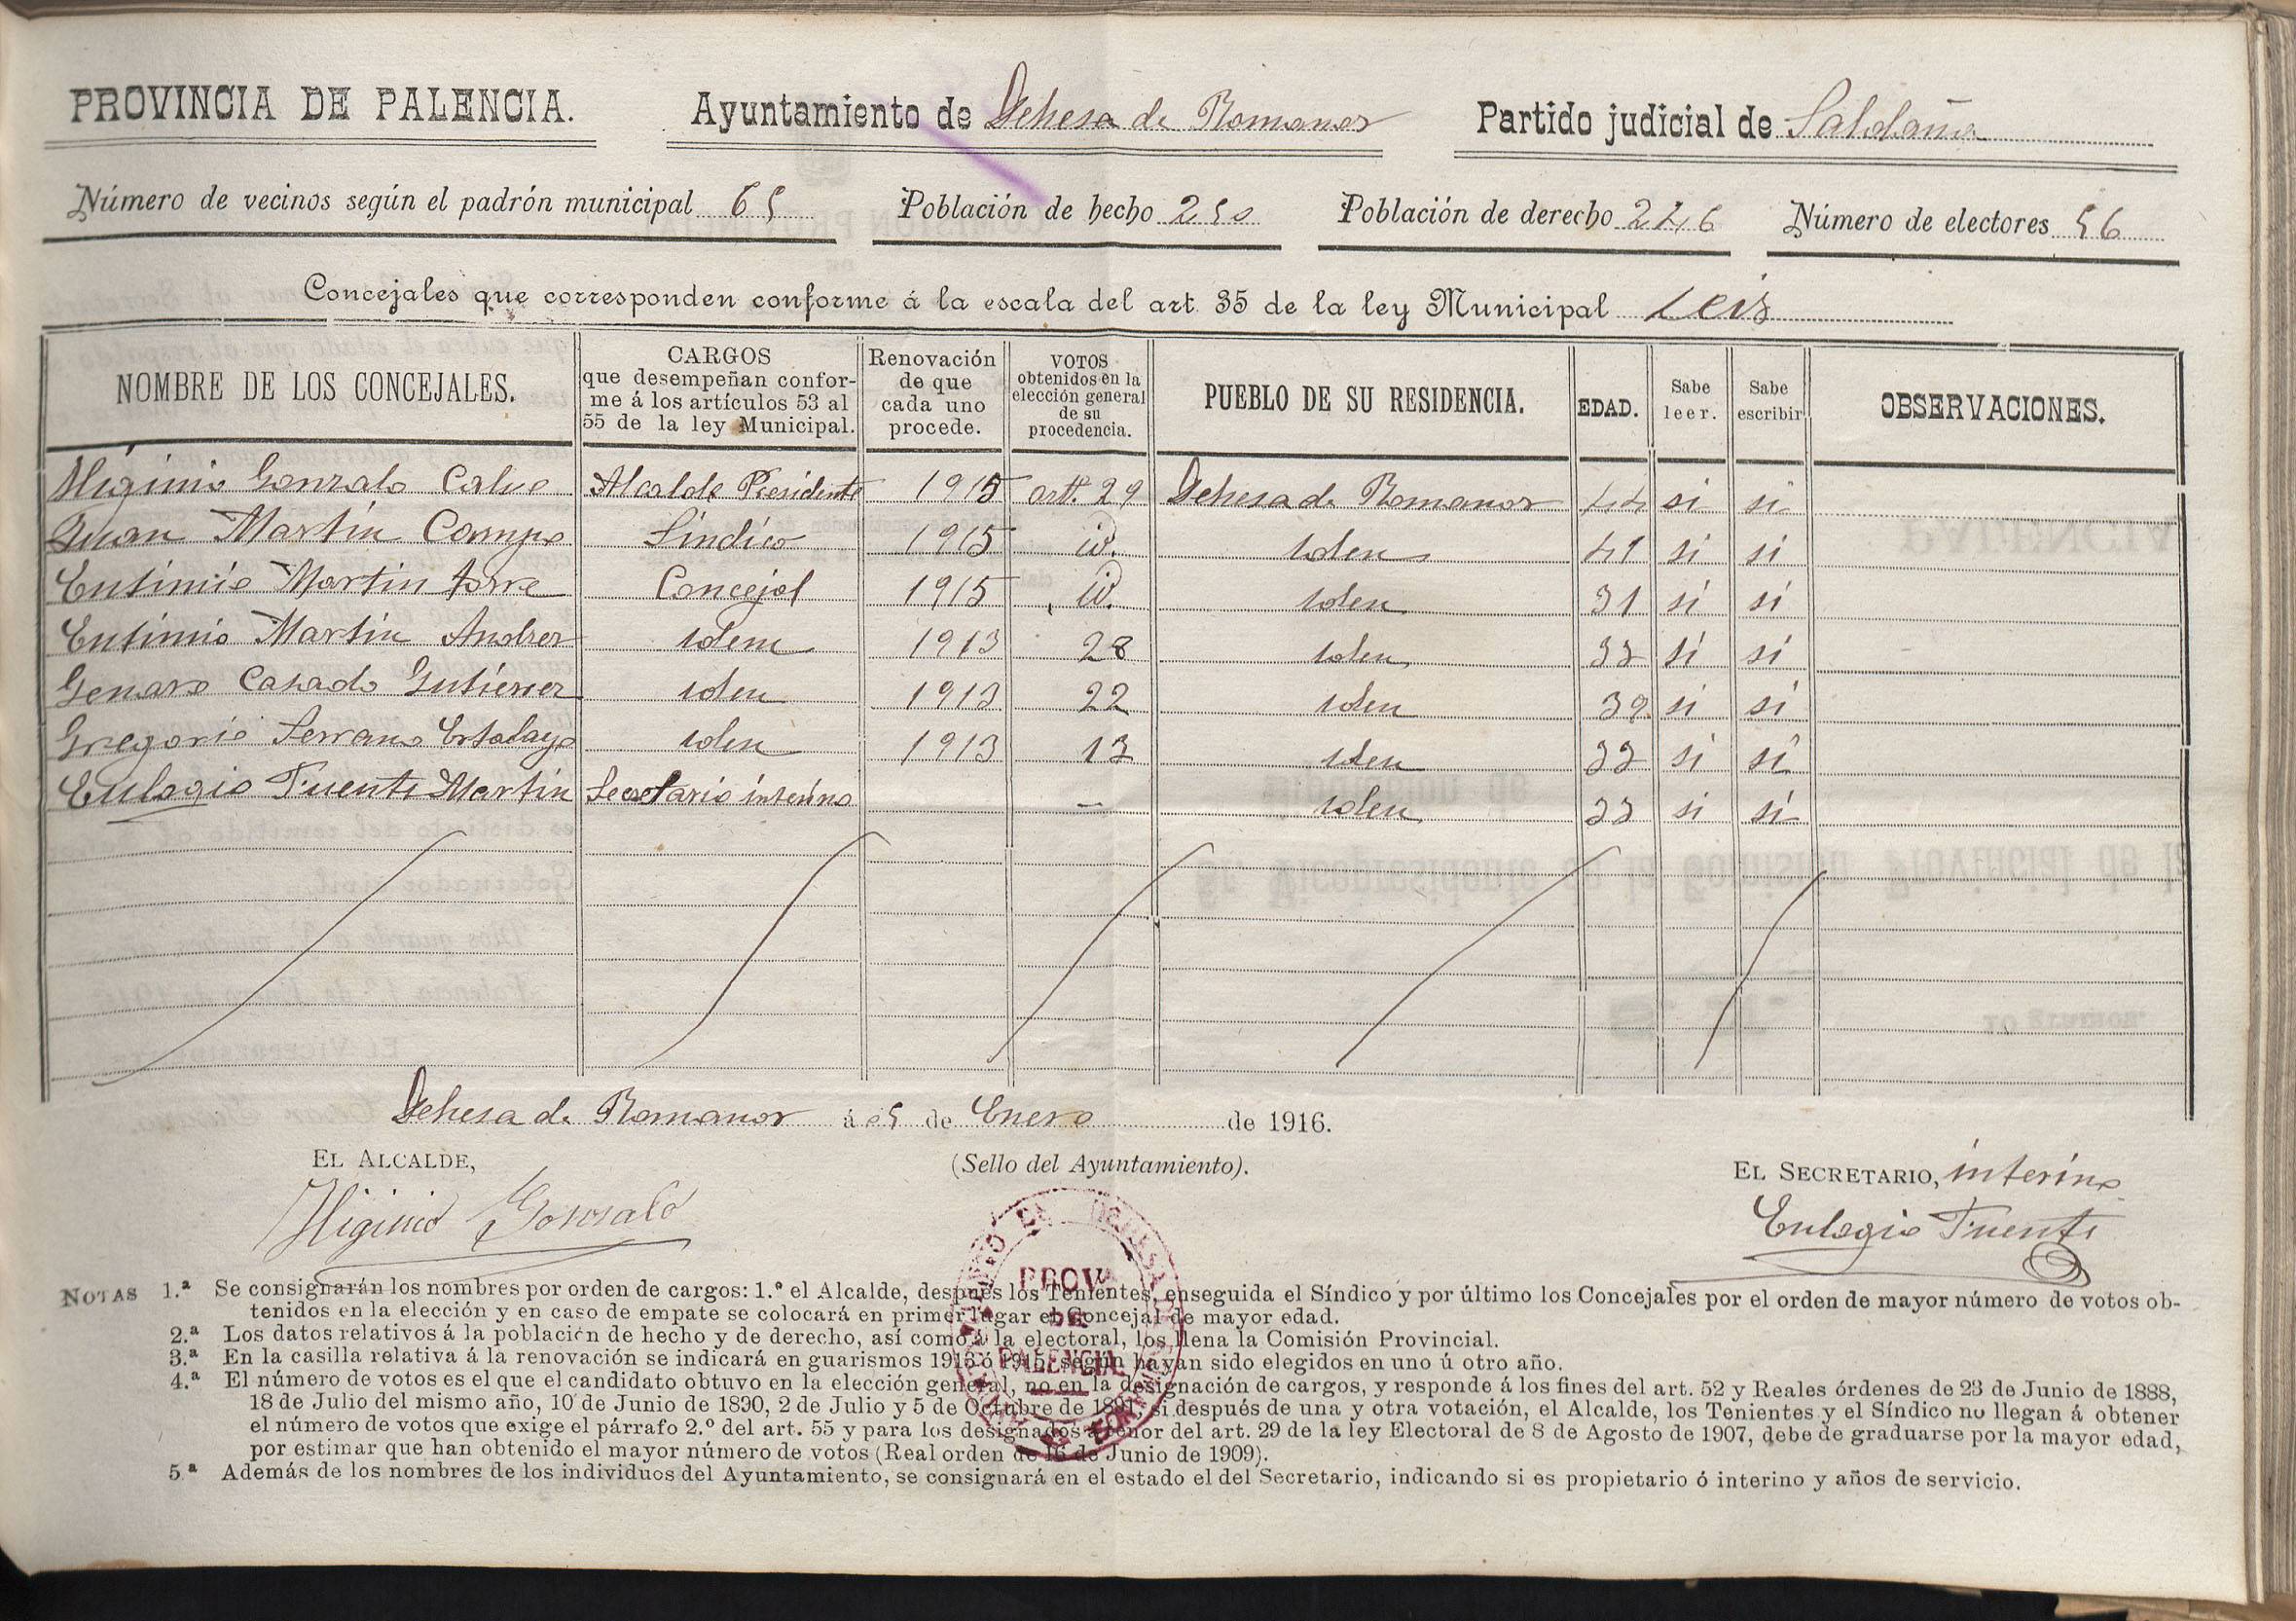 PROVINCIA DE PALENCIA. Ayuntamiento de Dehesa de Romanos Partido judicial de Saldaña
Número de vecinos según el padrón municipal 65 Población de hecho 250 Población de derecho 246 Número de electores 56
Concejales que corresponden conforme á la escala del art. 35 de la ley Municipal seis
NOMBRE DE LOS CONCEJALES. CARGOS que desempeñan conforme á los artículos 53 al 55 de la ley Municipal. Renovación de que cada uno procede. VOTOS obtenidos en la elección general de su procedencia. PUEBLO DE SU RESIDENCIA. EDAD. Sabe leer. Sabe escribir OBSERVACIONES.
Higinio Gonzalo Calvo Alcalde Presidente 1915 artº. 29 Dehesa de Romanos 44 si si
Juan Martín Campo Síndico 1915 id. idem 41 si si
Eutimio Martín torre Concejal 1915 id. idem 31 si si
Eutimio Martín Andres idem 1913 28 idem 33 si si
Genaro Casado Gutiérrez idem 1913 22 idem 39 si si
Gregorio Serrano Estalayo idem 1913 13 idem 33 si si
Eulogio Fuente Martín Secretario interino - idem 33 si si
Dehesa de Romanos á 05 de Enero de 1916.
EL ALCALDE, (Sello del Ayuntamiento). EL SECRETARIO, interino
Higinio Gonzalo Eulogio Fuente
AYUNTAMIENTO DE DEHESA DE ROMANOS
PROVª
DE
PALENCIA
NOTAS 1.ª Se consignarán los nombres por orden de cargos: 1.º el Alcalde, después los Tenientes, enseguida el Síndico y por último los Concejales por el orden de mayor número de votos ob-
tenidos en la elección y en caso de empate se colocará en primer lugar el Concejal de mayor edad.
2.ª Los datos relativos á la población de hecho y de derecho, así como á la electoral, los llena la Comisión Provincial.
3.ª En la casilla relativa á la renovación se indicará en guarismos 1913 ó 1915, según hayan sido elegidos en uno ú otro año.
4.ª El número de votos es el que el candidato obtuvo en la elección general, no en la designación de cargos, y responde á los fines del art. 52 y Reales órdenes de 23 de Junio de 1888,
18 de Julio del mismo año, 10 de Junio de 1890, 2 de Julio y 5 de Octubre de 1891, si después de una y otra votación, el Alcalde, los Tenientes y el Síndico no llegan á obtener
el número de votos que exige el párrafo 2.º del art. 55 y para los designados á tenor del art. 29 de la ley Electoral de 8 de Agosto de 1907, debe de graduarse por la mayor edad,
por estimar que han obtenido el mayor número de votos (Real orden de 16 de Junio de 1909).
5.ª Además de los nombres de los individuos del Ayuntamiento, se consignará en el estado el del Secretario, indicando si es propietario ó interino y años de servicio.